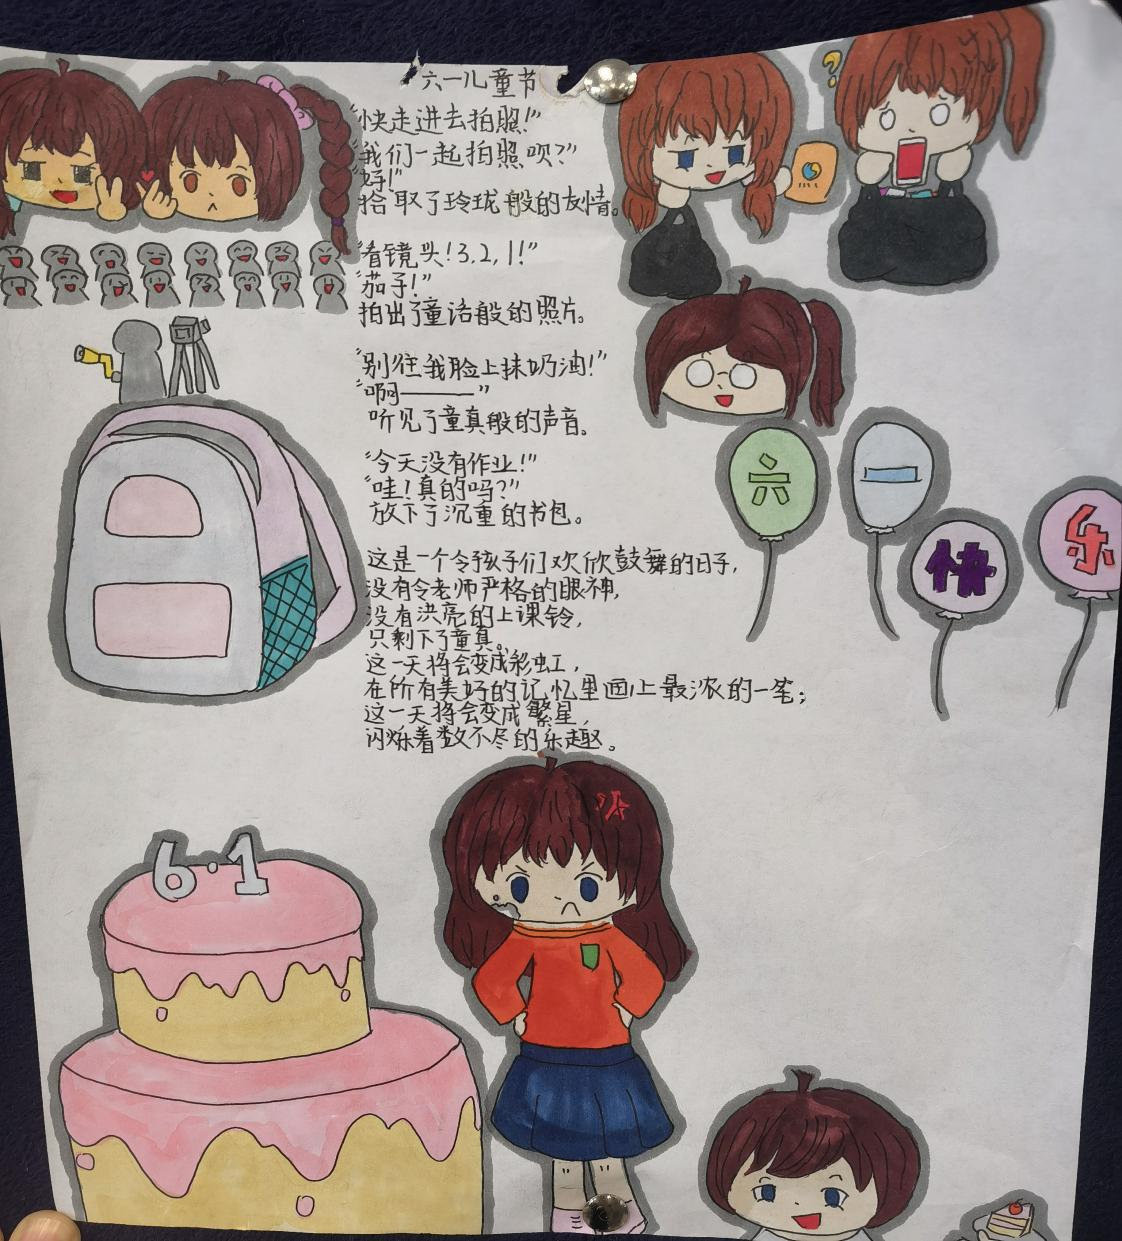 六一儿童节
“快走进去拍照!”
“我们一起拍照吹?”
“好!”
拾取了玲珑般的友情。
“看镜头!3,2,1!”
“茄子!”
拍出了童话般的照片。
“别往我脸上抹奶油!”
“啊———”
听见了童真般的声音。
“今天没有作业!”
“哇!真的吗?”
放下了沉重的书包。
这是一个令孩子们欢欣鼓舞的日子,
没有令老师严格的眼神,
没有洪亮的上课铃,
只剩下了童真。
这一天将会变成彩虹,
在所有美好的记忆里画上最浓的一笔;
这一天将会变成繁星,
闪烁着数不尽的乐趣。
?
六一快乐
6·1